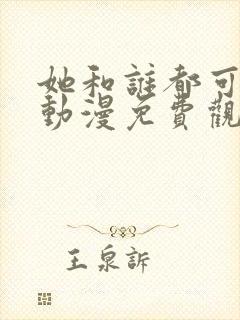 她和誰都可
動漫免費觀
王泉訴